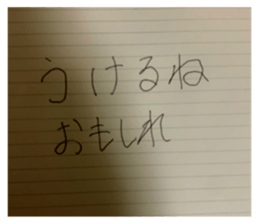 うけるね
おもしれ